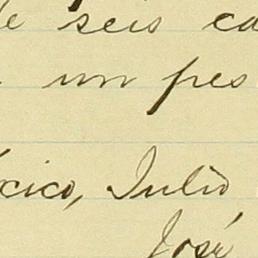 de seis ca
un pes
xico, Julio
José